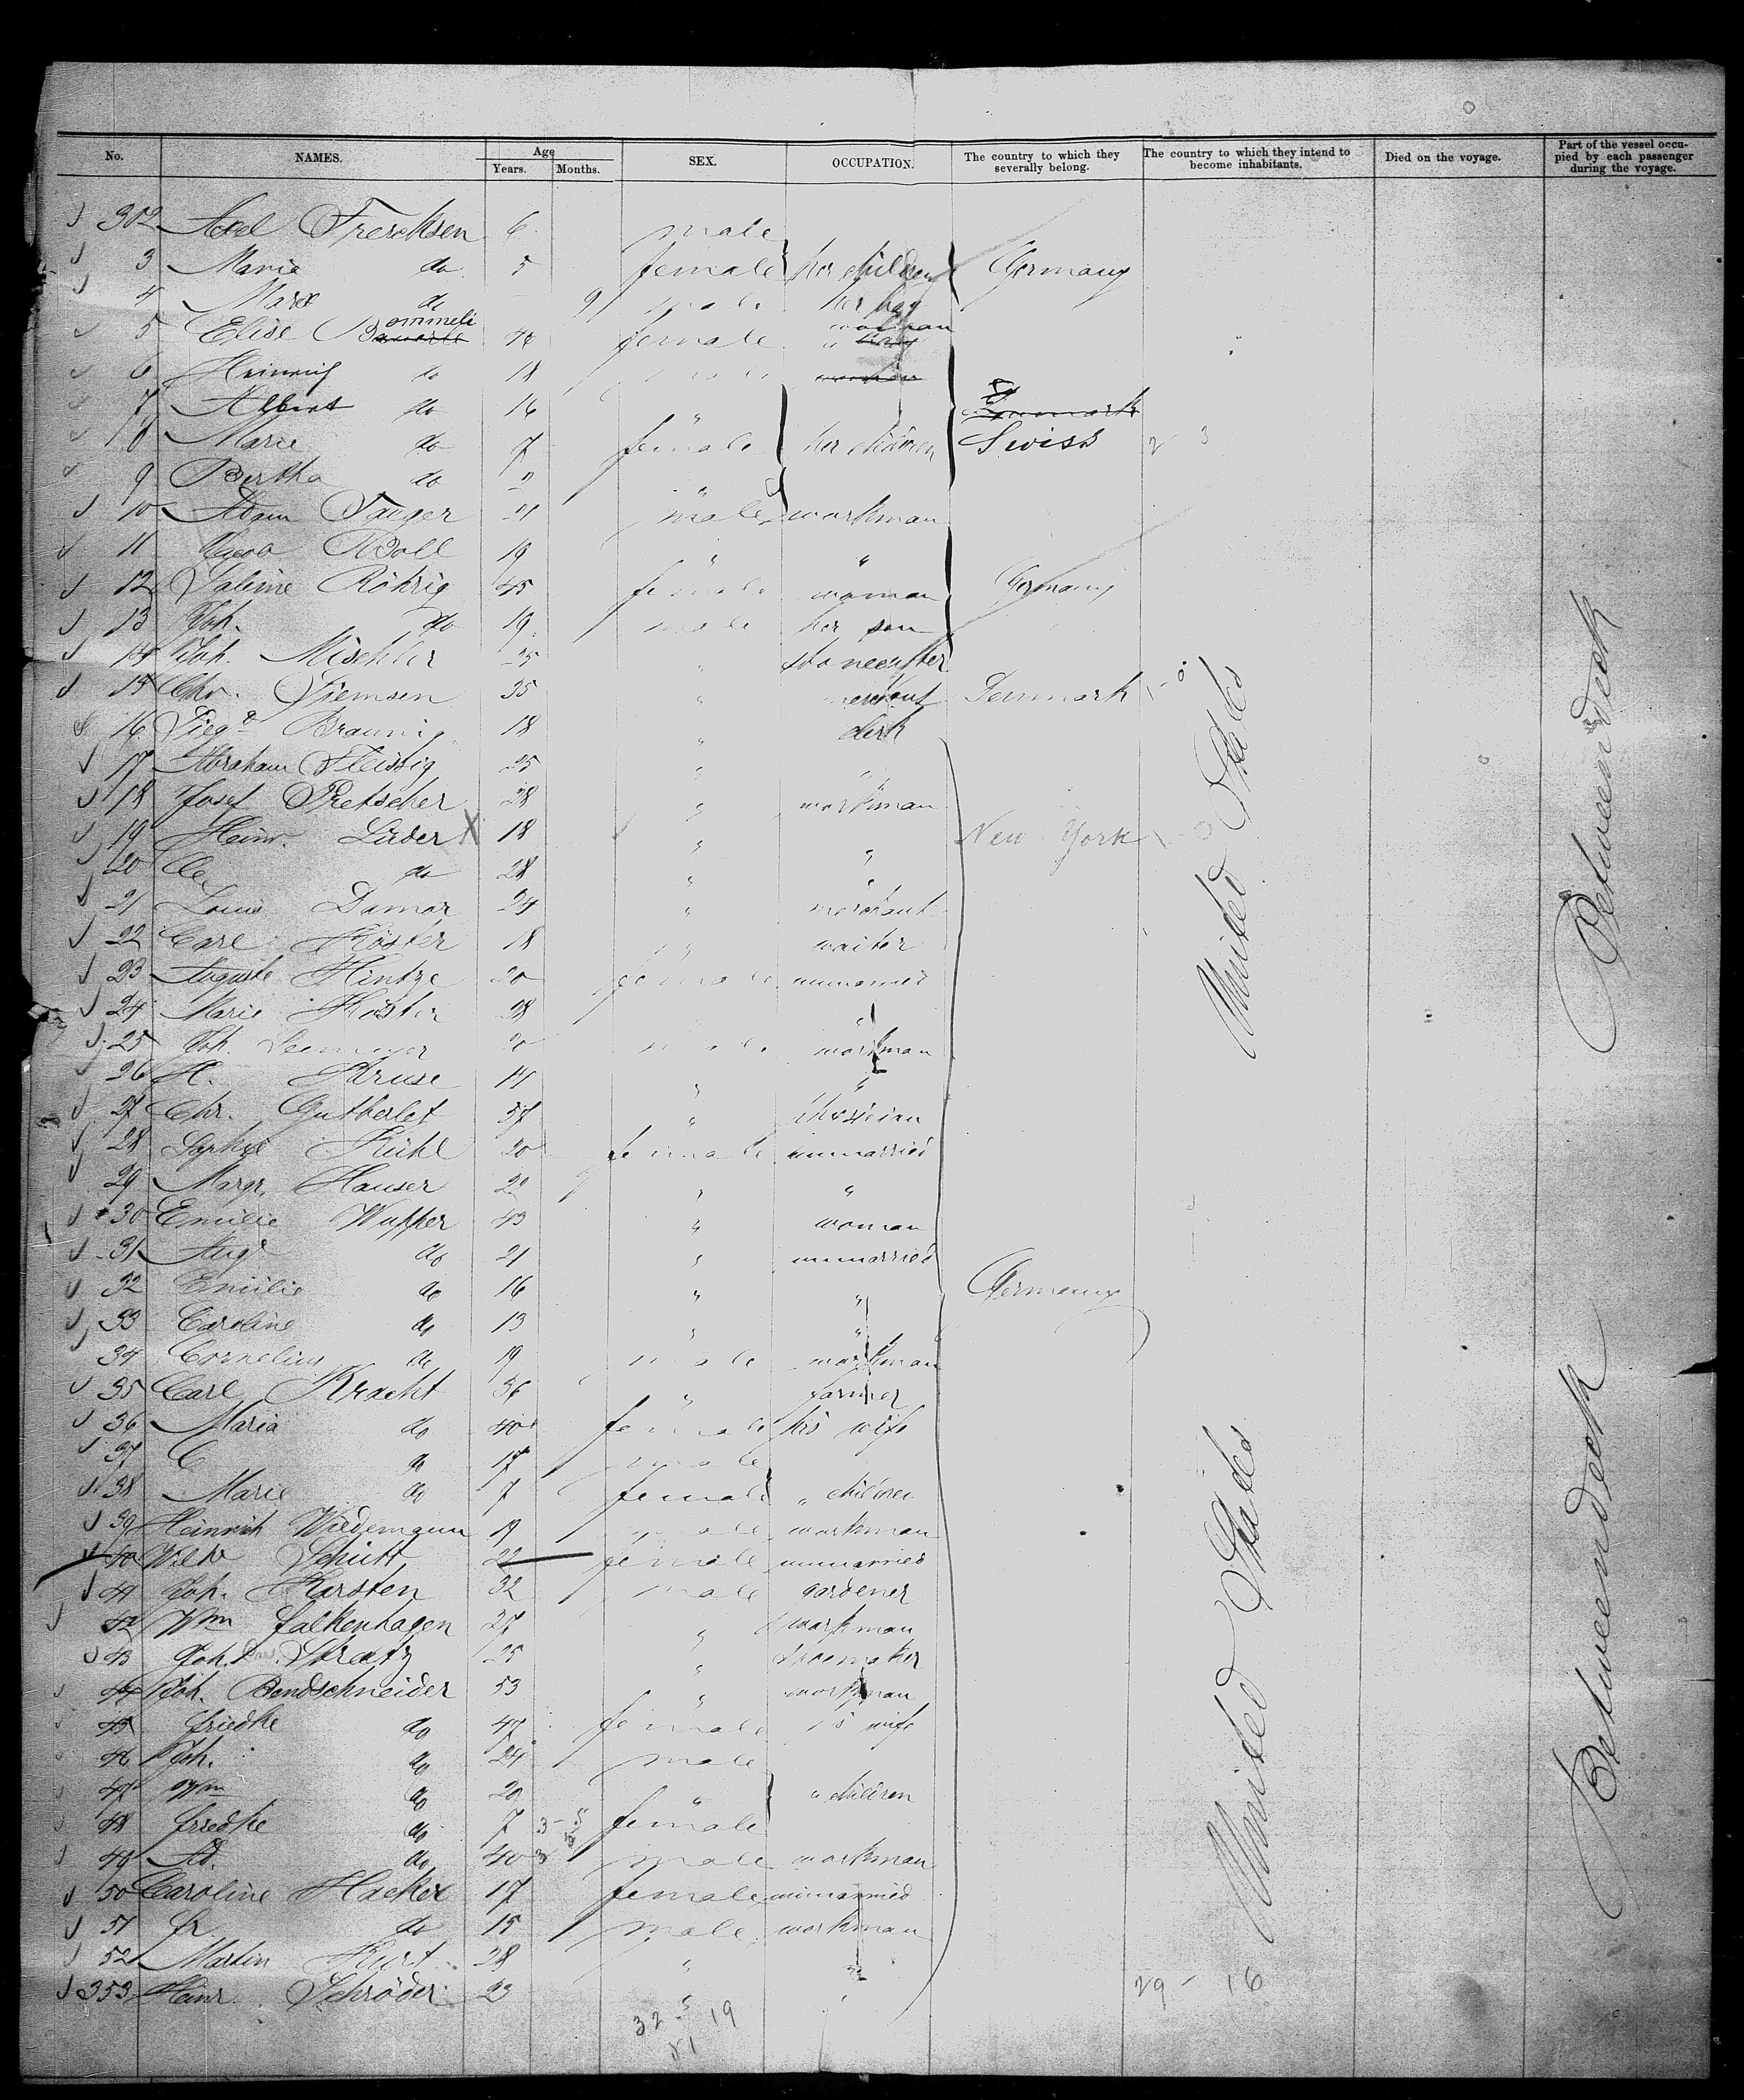 No. NAMES. Age Years. Months. SEX. OCCUPATION. The country to which they severally belong. The country to which they intend to become inhabitants. Died on the voyage. Part of the vessel occupied by each passenger during the voyage.
302 Axel Frercksen 6 male
3 Marie do 5 female her children Germany
4 Marx do 9 male her boy
5 Elise Bommeli 44 female woman
6 Heinrich do 18 male
7 Albert do 16 "
8 Marie do 7 female her children Swiss 2 3
9 Bertha do 2 "
10 Adam Fauger 21 male workman
11 Jacob Boll 19 " "
12 Salime Röhrig 45 female woman Germany
13 Joh. do 19 male her son
14 Joh. Mischler 25 " stonecutter
15 Chr. Siemsen 35 " merchant Denmark
16 Siegd Braunig 18 " clerk
17 Abraham Fleissig 25 " "
18 Josef Pretscher 28 " workman
19 Heinr. Lüder X 18 " " New York
20 do 28 " "
21 Louis Damar 24 " merchant
22 Carl Köster 18 " waiter
23 Auguste Hintze 20 female unmarried
24 Marie Köster 28 "
25 Joh. Seemeyer 20 male workman
26 H. Kruse 14 " "
27 Chr. Gutberlet 57 " Musician
28 Sophie Kühl 20 female unmarried
29 Margr. Hauser 22 " "
30 Emilie Wupper 43 " woman
31 Auge do 21 " unmarried
32 Emilie do 16 " " Germany
33 Caroline do 13 " "
34 Cornelius do 19 male workman
35 Carl Kracht 36 " farmer
36 Maria do 40 female his wife
37 C do 17 male
38 Marie do 7 female " children
39 Heinrich Wiedemann 19 male workman
40 Schütt 22 female unmarried
41 Joh. Karsten 32 male gardener
42 Wm Falkenhagen 27 " workman
43 Joh. Stratz 25 " shoemaker
44 Joh. Bendschneider 53 " workman
45 Friedke do 47 female his wife
46 Joh. do 24 male
47 Wm do 20 " " children
48 Friedke do 7 female
49 Ad. do 40 male workman
50 Caroline Hacker 17 female unmarried
51 Fr do 15 male workman
52 Martin Kurt 28 " "
353 Heinr. Schröder 23
29 - 16
32 19
51
United States
United States
Betweendeck
Betweendeck